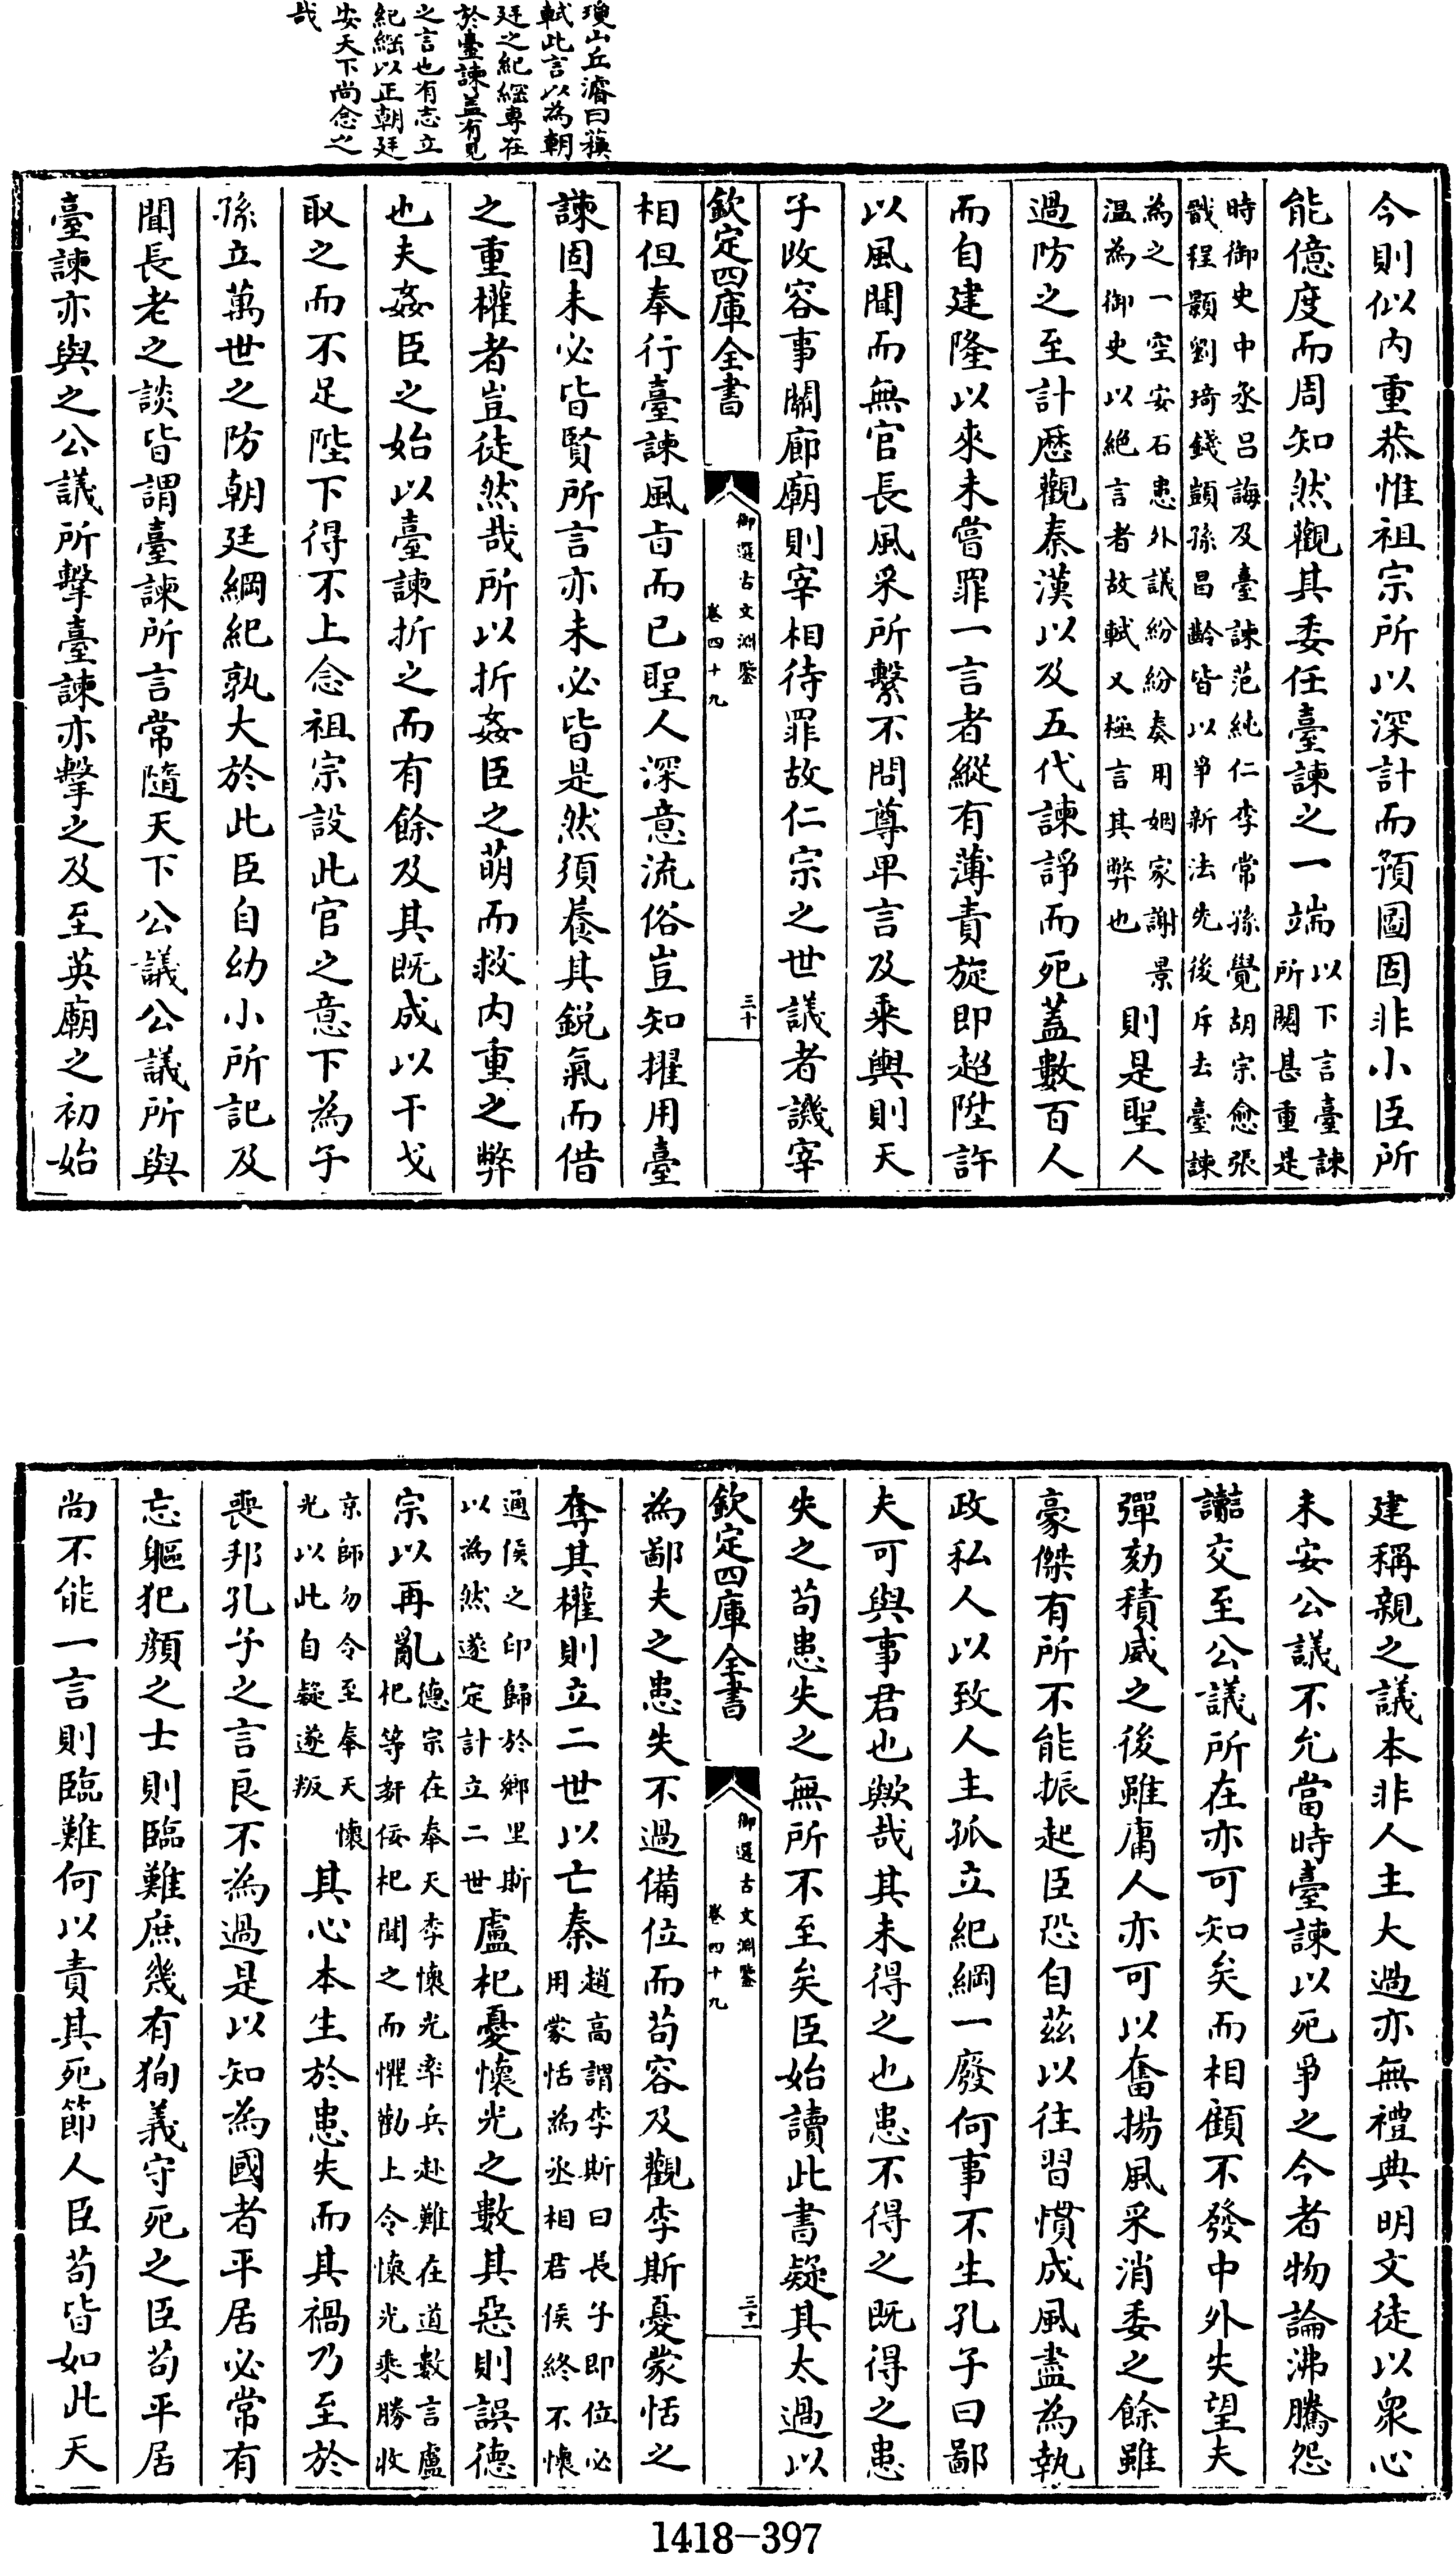 瓊山丘濬曰蘇
軾此言以為朝
廷之紀綱專在
於臺諫蓋有見
之言也有志立
紀綱以正朝廷
安天下尚念之
哉
今則似内重恭惟祖宗所以深計而預圖固非小臣所
能億度而周知然觀其委任臺諫之一端以下言臺諫所關甚重是
時御史中丞吕誨及臺諫范純仁李常孫覺胡宗愈張戩程顥劉琦錢顗孫昌齡皆以爭新法先後斥去臺諫
為之一空安石患外議紛紛奏用姻家謝景温為御史以絶言者故軾又極言其弊也則是聖人
過防之至計歷觀秦漢以及五代諫諍而死蓋數百人
而自建隆以來未嘗罪一言者縱有薄責旋即超陞許
以風聞而無官長風采所繫不問尊卑言及乘輿則天
子改容事關廊廟則宰相待罪故仁宗之世議者譏宰
欽定四庫全書
御選古文淵鑒
卷四十九
三十
相但奉行臺諫風旨而已聖人深意流俗豈知擢用臺
諫固未必皆賢所言亦未必皆是然須養其銳氣而借
之重權者豈徒然哉所以折姦臣之萌而救内重之弊
也夫姦臣之始以臺諫折之而有餘及其既成以干戈
取之而不足陛下得不上念祖宗設此官之意下為子
孫立萬世之防朝廷綱紀孰大於此臣自幼小所記及
聞長老之談皆謂臺諫所言常隨天下公議公議所與
臺諫亦與之公議所擊臺諫亦擊之及至英廟之初始
建稱親之議本非人主大過亦無禮典明文徒以衆心
未安公議不允當時臺諫以死爭之今者物論沸騰怨
讟交至公議所在亦可知矣而相顧不發中外失望夫
彈劾積威之後雖庸人亦可以奮揚風采消委之餘雖
豪傑有所不能振起臣恐自茲以往習慣成風盡為執
政私人以致人主孤立紀綱一廢何事不生孔子曰鄙
夫可與事君也歟哉其未得之也患不得之既得之患
失之苟患失之無所不至矣臣始讀此書疑其太過以
欽定四庫全書
御選古文淵鑒
卷四十九
三十一
為鄙夫之患失不過備位而苟容及觀李斯憂蒙恬之
奪其權則立二世以亡秦趙高謂李斯曰長子即位必用蒙恬為丞相君侯終不懷
通侯之印歸於鄉里斯以為然遂定計立二世盧杞憂懷光之數其惡則誤德
宗以再亂德宗在奉天李懷光率兵赴難在道數言盧杞等姧佞杞聞之而懼勸上令懷光乘勝收
京師勿令至奉天懷光以此自疑遂叛其心本生於患失而其禍乃至於
喪邦孔子之言良不為過是以知為國者平居必常有
忘軀犯顔之士則臨難庶幾有狥義守死之臣苟平居
尚不能一言則臨難何以責其死節人臣苟皆如此天
1418-397